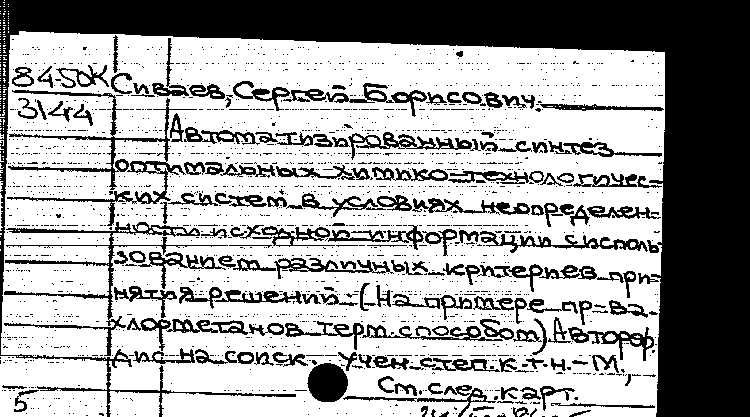 8450К Сиваев, Сергей Борисович.
3144
Автоматизированный синтез
оптимальных химико-технологичес-
ких систем в условиях неопределен-
ности исходной информации с исполь-
зованием различных критериев при-
нятия решений. (На примере пр-ва
хлорметанов терм. способом). Автореф.
дис на соиск. учен. степ. к.т.н. - М.,
См. след. карт.
5